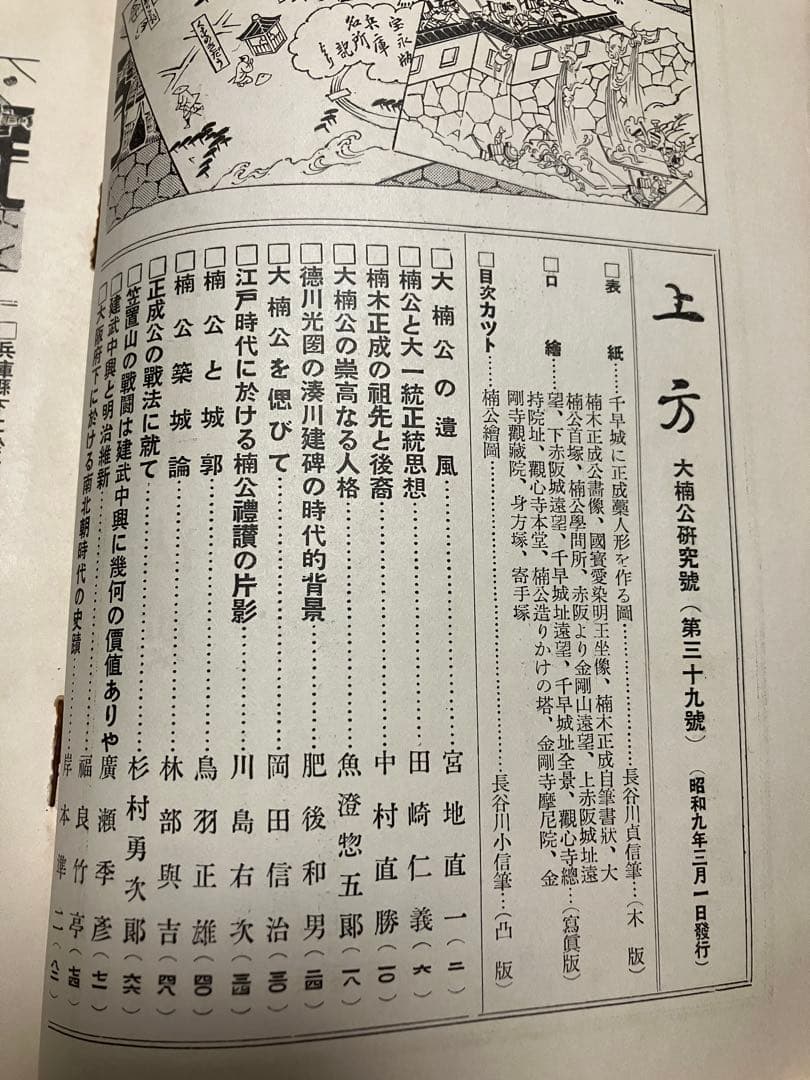 宝永版
兵庫
名所記
より
上方 大楠公研究號（第三十九號）（昭和九年三月一日發行）
□表紙……千早城に正成藁人形を作る圖……長谷川貞信筆…（木版）
□口繪……楠木正成公畵像、國寳愛染明王坐像、楠木正成自筆書狀、大
楠公首塚、楠公學問所、赤阪より金剛山遠望、上赤阪城址遠
望、下赤阪城遠望、千早城址遠望、千早城址全景、觀心寺總…（寫眞版）
持院址、觀心寺本堂、楠公造りかけの塔、金剛寺摩尼院、金
剛寺觀藏院、身方塚、寄手塚
□目次カツト……楠公繪圖……長谷川小信筆…（凸版）
□大楠公の遺風……宮地直一（二）
□楠公と大一統正統思想……田崎仁義（六）
□楠木正成の祖先と後裔……中村直勝（一〇）
□大楠公の崇高なる人格……魚澄惣五郎（一八）
□德川光圀の湊川建碑の時代的背景……肥後和男（二四）
□大楠公を偲びて……岡田信治（三〇）
□江戸時代に於ける楠公禮讃の片影……川島右次（三四）
□楠公と城郭……鳥羽正雄（四〇）
□楠公築城論……林部與吉（四八）
□正成公の戰法に就て……杉村勇次郎（六六）
□笠置山の戰鬪は建武中興に幾何の價値ありや 廣瀬季彥（七一）
□建武中興と明治維新……福良竹亭（七四）
□大阪府下に於ける南北朝時代の史蹟……岸本準二（八二）
□兵庫縣下に